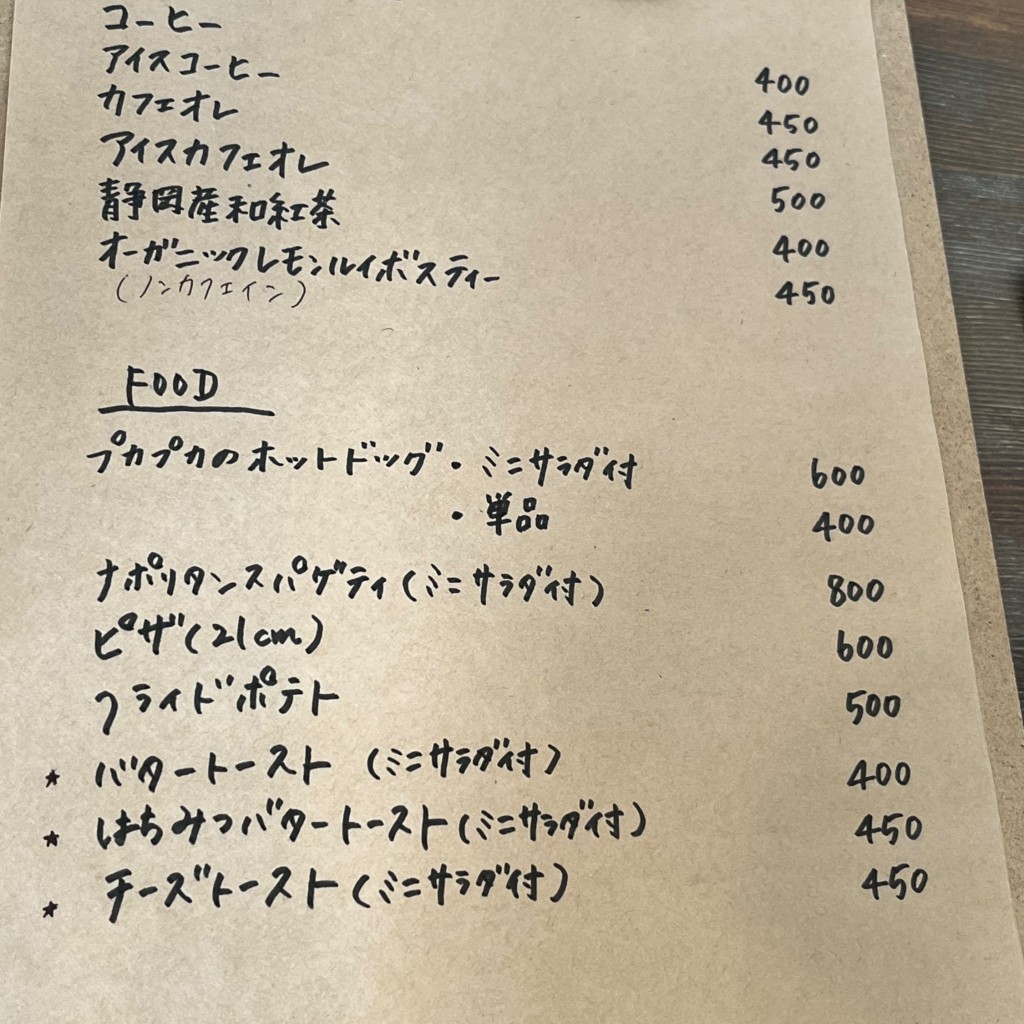 コーヒー 400
アイスコーヒー 450
カフェオレ 450
アイスカフェオレ 500
靜岡産和紅茶 400
オーガニックレモンルイボスティー 450
(ノンカフェイン)
FOOD
プカプカのホットドッグ・ミニサラダ付 600
・単品 400
ナポリタンスパゲティ(ミニサラダ付) 800
ピザ(21cm) 600
フライドポテト 500
★ バタートースト (ミニサラダ付) 400
★ はちみつバタートースト(ミニサラダ付) 450
★ チーズトースト(ミニサラダ付) 450